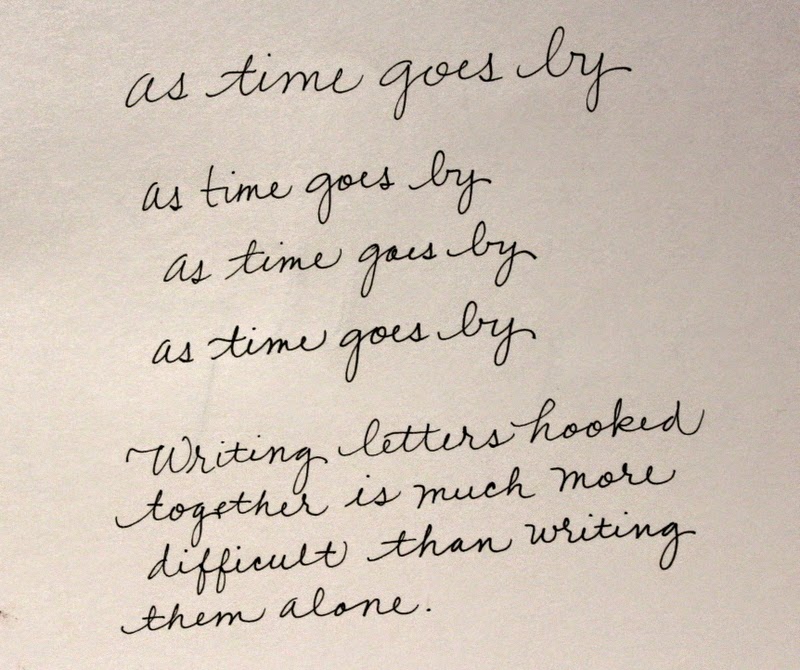 as time goes by
as time goes by
as time goes by
as time goes by
Writing letters hooked
together is much more
difficult than writing
them alone.